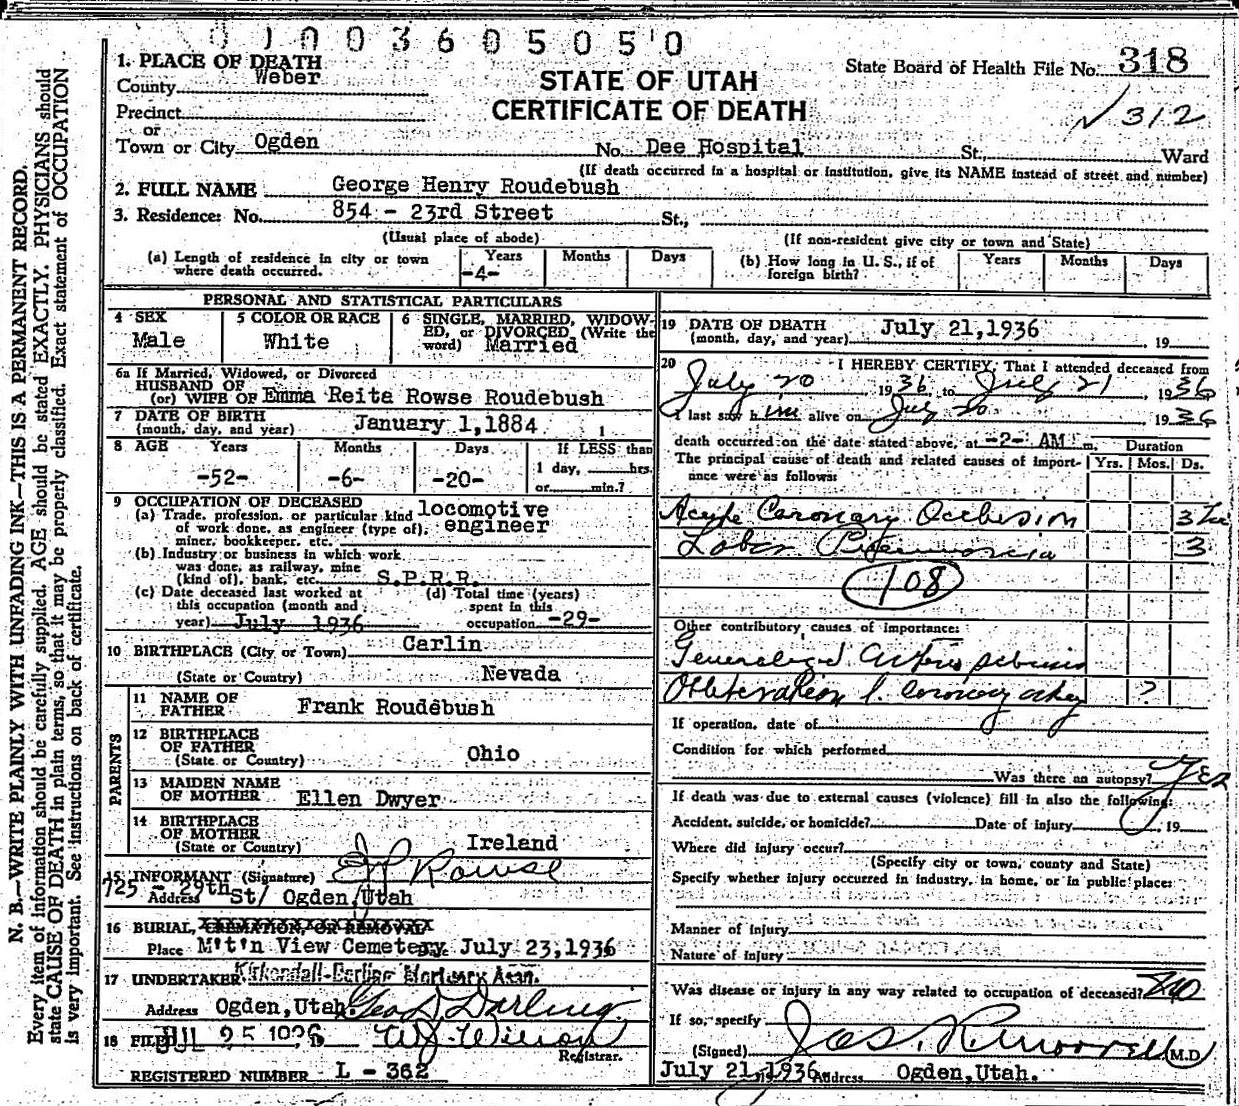 0100360505'0
1. PLACE OF DEATH
County Weber
Precinct
or
Town or City Ogden
STATE OF UTAH
CERTIFICATE OF DEATH
State Board of Health File No. 318
312
No. Dee Hospital St., Ward
(If death occurred in a hospital or institution, give its NAME instead of street and number)
2. FULL NAME George Henry Roudebush
3. Residence: No. 854 - 23rd Street St.,
(Usual place of abode) (If non-resident give city or town and State)
(a) Length of residence in city or town where death occurred. Years -4- Months Days
(b) How long in U. S., if of foreign birth? Years Months Days
PERSONAL AND STATISTICAL PARTICULARS
4 SEX Male
5 COLOR OR RACE White
6 SINGLE, MARRIED, WIDOWED, or DIVORCED (Write the word) Married
6a If Married, Widowed, or Divorced
HUSBAND OF
(or) WIFE OF Emma Reita Rowse Roudebush
7 DATE OF BIRTH
(month, day, and year) January 1,1884
8 AGE Years Months Days If LESS than
-52- -6- -20- 1 day, hrs.
or min.?
9 OCCUPATION OF DECEASED
(a) Trade, profession, or particular kind locomotive
of work done, as engineer (type of), engineer
miner, bookkeeper, etc.
(b) Industry or business in which work
was done, as railway, mine
(kind of), bank, etc. S.P.R.R.
(c) Date deceased last worked at
this occupation (month and
year) July 1936
(d) Total time (years)
spent in this
occupation -29-
10 BIRTHPLACE (City or Town) Carlin
(State or Country) Nevada
PARENTS
11 NAME OF
FATHER Frank Roudebush
12 BIRTHPLACE
OF FATHER
(State or Country) Ohio
13 MAIDEN NAME
OF MOTHER Ellen Dwyer
14 BIRTHPLACE
OF MOTHER
(State or Country) Ireland
15 INFORMANT (Signature) Rowse
725 - 29th
Address St/ Ogden,Utah
16 BURIAL, CREMATION, OR REMOVAL
Place M't'n View Cemetery Date July 23,1936
17 UNDERTAKER Kirkendall-Darling Mortuary Assn.
Address Ogden,Utah. Geo D. Darling
18 FILED JUL 25 1936 Wilson
Registrar.
REGISTERED NUMBER L - 362
19 DATE OF DEATH
(month, day, and year) July 21,1936 , 19
20 I HEREBY CERTIFY, That I attended deceased from
July 20 1936 to July 21 , 1936
I last saw him alive on July 20 1936
death occurred on the date stated above, at -2- AM m. Duration
The principal cause of death and related causes of importance were as follows: Yrs. Mos. Ds.
Acute Coronary Occlusion 3
Lobar Pneumonia 3
108
Other contributory causes of importance:
Generalized
Obliteration l. coronary ?
If operation, date of
Condition for which performed
Was there an autopsy? Yes
If death was due to external causes (violence) fill in also the following:
Accident, suicide, or homicide? Date of injury , 19
Where did injury occur?
(Specify city or town, county and State)
Specify whether injury occurred in industry, in home, or in public place:
Manner of injury
Nature of injury
Was disease or injury in any way related to occupation of deceased? No
If so, specify
(Signed) Jas. M.D.
July 21,1936 Address Ogden,Utah.
N. B.—WRITE PLAINLY WITH UNFADING INK—THIS IS A PERMANENT RECORD.
Every item of information should be carefully supplied. AGE should be stated EXACTLY. PHYSICIANS should
state CAUSE OF DEATH in plain terms, so that it may be properly classified. Exact statement of OCCUPATION
is very important. See instructions on back of certificate.